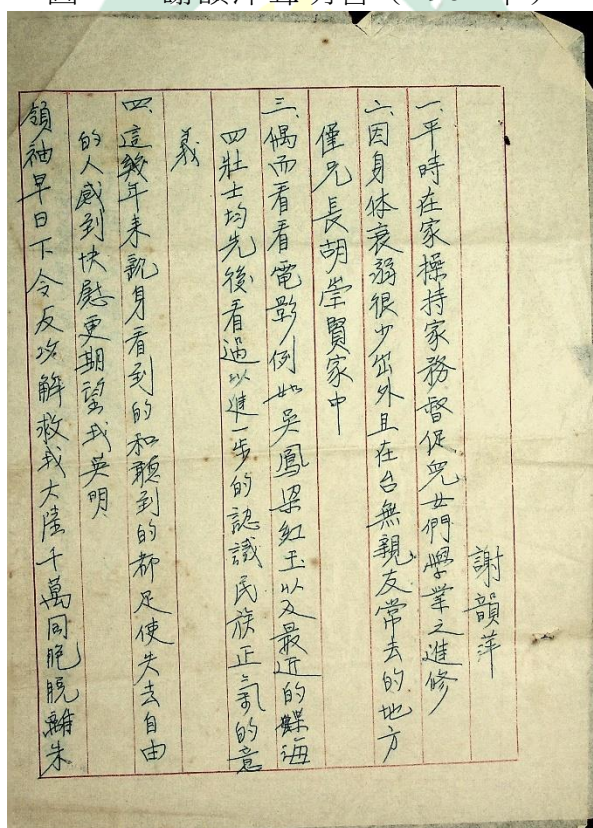 謝韻萍
一、平時在家操持家務督促兒女們學業之進修
二、因身体衰弱很少出外且在台無親友常去的地方
僅兄長胡崇賢家中
三、偶而看看電影例如吳鳳梁紅玉以及最近的碟海
四壯士均先後看過以進一步的認識民族正氣的意
義
四、這幾年来親身看到的和聽到的都足使失去自由
的人感到快慰更期望我英明
領袖早日下令反攻解救我大陸千萬同胞脱離朱